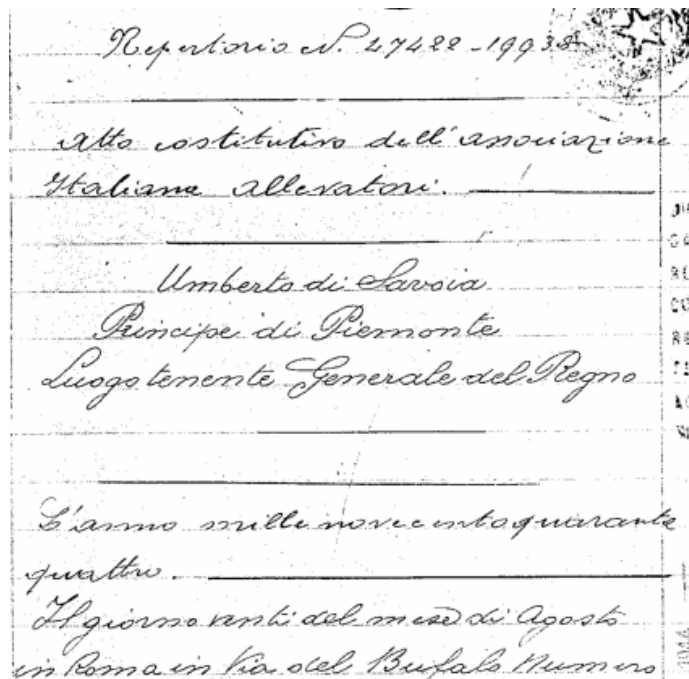 Repertorio N. 27422-19938
Atto costitutivo dell'associazione
Italiana allevatori.
Umberto di Savoia
Principe di Piemonte
Luogotenente Generale del Regno
L'anno millenovecentoquaranta
quattro.
Il giorno venti del mese di Agosto
in Roma in Via del Bufalo Numero